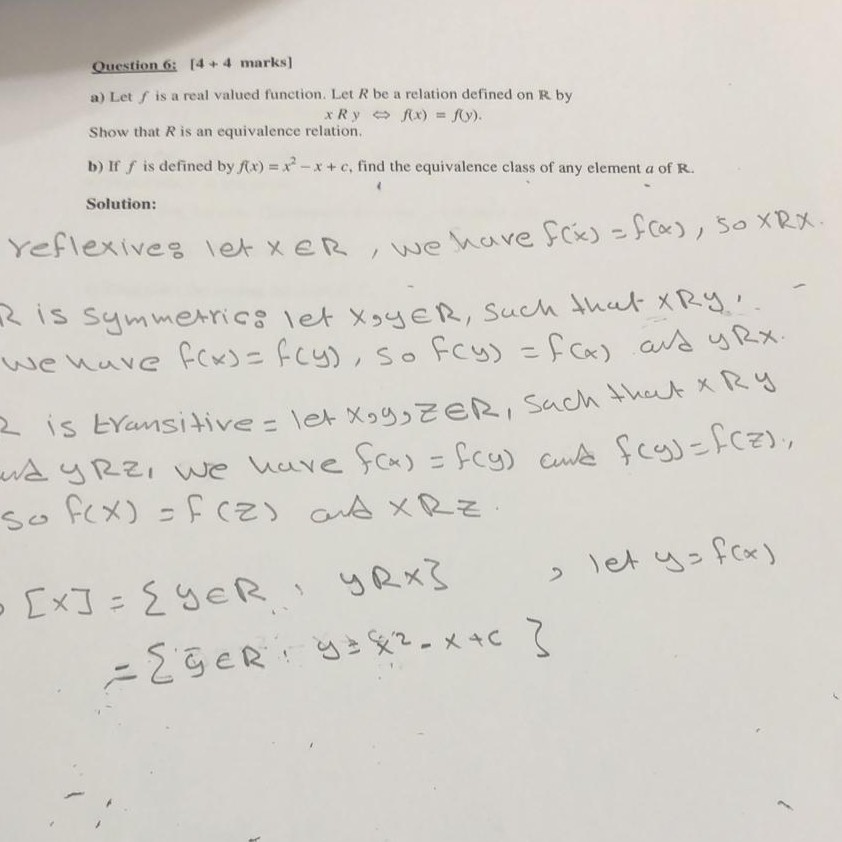 Question 6: [4 + 4 marks]
a) Let f is a real valued function. Let R be a relation defined on ℝ by
x R y ⇔ f(x) = f(y).
Show that R is an equivalence relation.
b) If f is defined by f(x) = x² – x + c, find the equivalence class of any element a of ℝ.
Solution:
reflexive: let x ∈ R, we have f(x) = f(x), so xRx.
R is symmetric: let x,y ∈ R, such that xRy.
we have f(x) = f(y), so f(y) = f(x) and yRx.
is transitive = let x,y,z ∈ R, such that x R y
and yRz, we have f(x) = f(y) and f(y) = f(z),
so f(x) = f(z) and xRz.
[x] = {y ∈ R : yRx} , let y = f(x)
= {y ∈ R : y = x² - x + c}